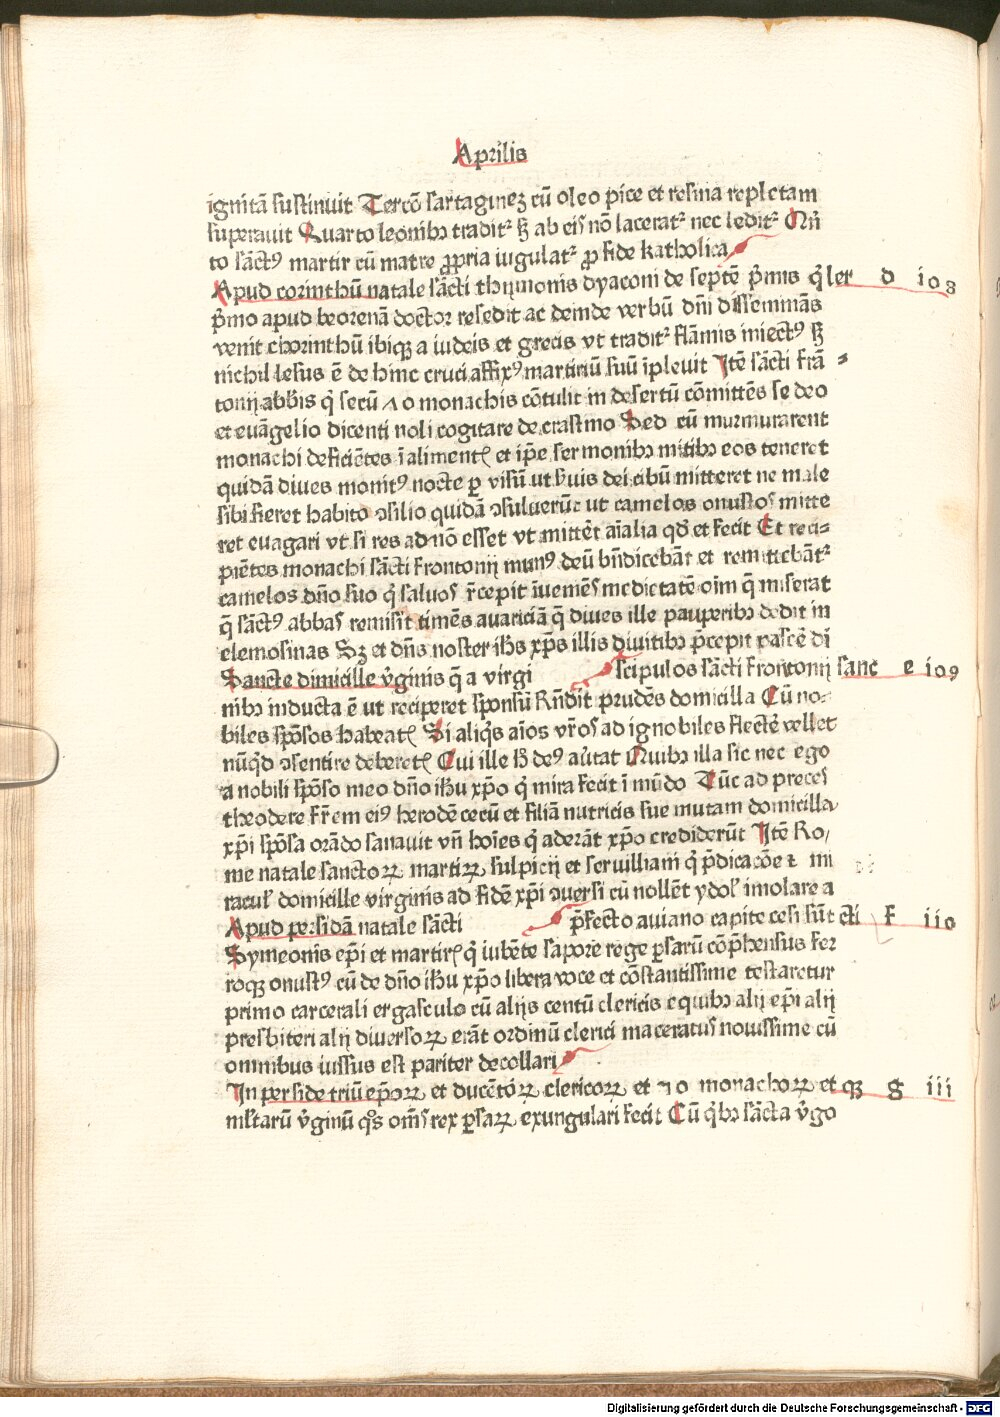 Aprilis
ignitā sustinuit Tercō sartaginēꝫ cū oleo pice et resina repletam
superauit Quarto leonibꝫ tradit᷑ sꝫ ab eis nō lacerat᷑ nec ledit᷑ Qūi
to sāctꝰ martir cū matre ꝓpria iugulat᷑ ꝓ fide katholica
Apud corinthū natale sācti thymonis dyaconi de septē p̄mis q̄ ler d io8
p̄mo apud beorenā doctor resedit ac deinde verbū dn̄i dissemināns
venit chorinthū ibiqꝫ a iudeis et grecis vt tradit᷑ flāmis iniectꝰ sꝫ
nichil lesus ē de hinc cruci affixꝰ martiriū suū īpleuit Itē sācti frā⸗
tonij abb̄is q̄ secū ᴧo monachis cōtulit in desertū cōmittēs se deo
et euāgelio dicenti noli cogitare de crastino Sed cū murmurarent
monachi deficiētes ī aliment̄ et ip̄e sermonibꝫ mitibꝫ eos teneret
quidā diues monitꝰ nocte ꝑ visū ut ẜuis dei cibū mitteret ne male
sibi fieret habito ꝯsilio quidā ꝯsuluerūt ut camelos onustos mitte
ret euagari vt si res ad nō esset vt mittēt aīalia qd̄ et fecit Et reci⸗
piētes monachi sācti frontonij munꝰ deū bn̄dicebāt et remittebāt᷑
camelos dn̄o suo q̄ saluos r̄cepit īuemēs medictatē oīm q̄ miserat
q̄ sāctꝰ abbas remisit timēs auariciā q̄ diues ille pauperibꝫ dedit in
elemosinas Sꝫ et dn̄s noster ih̄s xp̄s illis diuitibꝫ p̄cepit pascē di
scipulos sācti frontonij sanc e io9
Sancte dimicille v̄ginis q̄ a virgi
nibꝫ inducta ē ut reciperet sponsū Rn̄dit prudēs domicilla Cū no⸗
biles sp̄osos habeat̄ Si aliq̄s aīos vr̄os ad ignobiles flectē vellet
nūq̄d ꝯsentire deberet̄ Cui ille lꝫ deꝰ au̇tat Quibꝫ illa sic nec ego
a nobili sp̄oso meo dn̄o ih̄u xp̄o q̄ mira fecit ī mūdo Tūc ad preces
theodere fr̄em eiꝰ herodē cecū et filiā nutricis sue mutam domicilla
xp̄i sp̄osa orādo sanauit vn̄ hoīes q̄ aderāt xp̄o crediderūt Itē Ro⸗
me natale sanctoꝝ martiꝝ sulpicij et seruilliani q̄ p̄dicacōe ⁊ mi
racul̓ domicille virginis ad fidē xp̄i ꝯuersi cū nollēt ydol̓ imolare a
p̄fecto auiano capite cesi sūt cti f iio
Apud persidā natale sācti
Symeonis ep̄i et martir̄ q̄ iubēte sapore rege ꝑsarū cōp̄hensus fer
roqꝫ onustꝰ cū de dn̄o ih̄u xp̄o libera voce et cōstantissime testaretur
primo carcerali ergasculo cū alijs centū clericis e quibꝫ alij ep̄i alij
presbiteri alij diuersoꝝ erāt ordinū clerici maceratus nouissime cū
omnibus iussus est pariter decollari
In perside triū ep̄oꝝ et ducētoꝝ clericoꝝ et ᴧo monachoꝝ et qꝫ g iii
ml̓tarū v̄ginū q̄s om̄s rex ꝑsaꝝ exungulari fecit Cū q̄bꝫ sācta v̄go
Digitalisierung gefördert durch die Deutsche Forschungsgemeinschaft - DFG